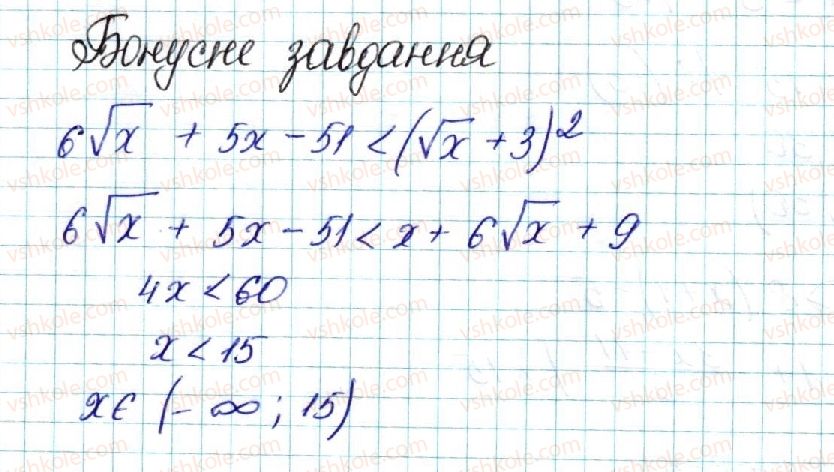 Бонусне завдання
6√x + 5x - 51 < (√x + 3)²
6√x + 5x - 51 < x + 6√x + 9
4x < 60
x < 15
x ∈ (-∞; 15)